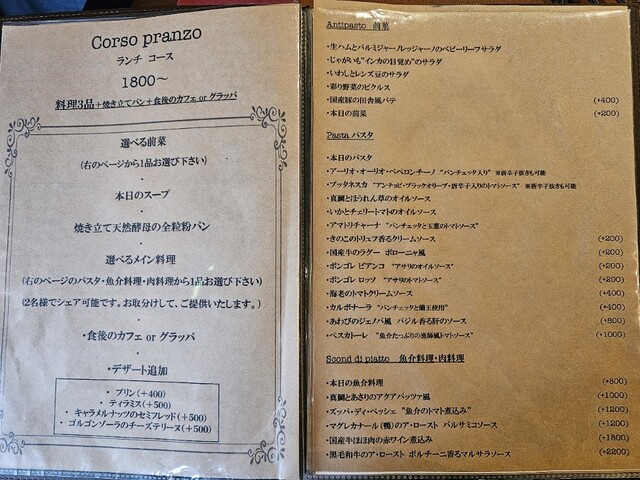 Corso pranzo
ランチ コース
1800～
料理3品＋焼き立てパン＋食後のカフェ or グラッパ
選べる前菜
(右のページから1品お選び下さい)
・
本日のスープ
・
焼き立て天然酵母の全粒粉パン
・
選べるメイン料理
(右のページのパスタ・魚介料理・肉料理から1品お選び下さい)
(2名様でシェア可能です。お取分けして、ご提供いたします。)
・
・食後のカフェ or グラッパ
・
・デザート追加
・ プリン(+400)
・ ティラミス(+500)
・ キャラメルナッツのセミフレッド(+500)
・ ゴルゴンゾーラのチーズテリーヌ(+500)
Antipasto 前菜
・生ハムとパルミジャーノレッジャーノのベビーリーフサラダ
・じゃがいも"インカの目覚め"のサラダ
・いわしとレンズ豆のサラダ
・彩り野菜のピクルス
・国産豚の田舎風パテ (+400)
・本日の前菜 (+200)
Pasta パスタ
・本日のパスタ
・アーリオ・オーリオ・ペペロンチーノ "パンチェッタ入り" ※唐辛子抜きも可能
・プッタネスカ "アンチョビ・ブラックオリーブ・唐辛子入りのトマトソース" ※唐辛子抜きも可能
・真鯛とほうれん草のオイルソース
・いかとチェリートマトのオイルソース
・アマトリチャーナ "パンチェッタと玉葱のトマトソース"
・きのこのトリュフ香るクリームソース (+200)
・国産牛のラグー ボローニャ風 (+200)
・ボンゴレ ビアンコ "アサリのオイルソース" (+200)
・ボンゴレ ロッソ "アサリのトマトソース" (+200)
・海老のトマトクリームソース (+400)
・カルボナーラ "パンチェッタと蘭王使用" (+400)
・あわびのジェノバ風 バジル香る肝のソース (+800)
・ペスカトーレ "魚介たっぷりの漁師風トマトソース" (+1000)
Scond di piatto 魚介料理・肉料理
・本日の魚介料理 (+800)
・真鯛とあさりのアクアパッツァ風 (+1000)
・ズッパ・ディ・ペッシェ "魚介のトマト煮込み" (+1200)
・マグレカナール(鴨)のア・ロースト バルサミコソース (+1200)
・国産牛ほほ肉の赤ワイン煮込み (+1800)
・黒毛和牛のア・ロースト ポルチーニ香るマルサラソース (+2200)